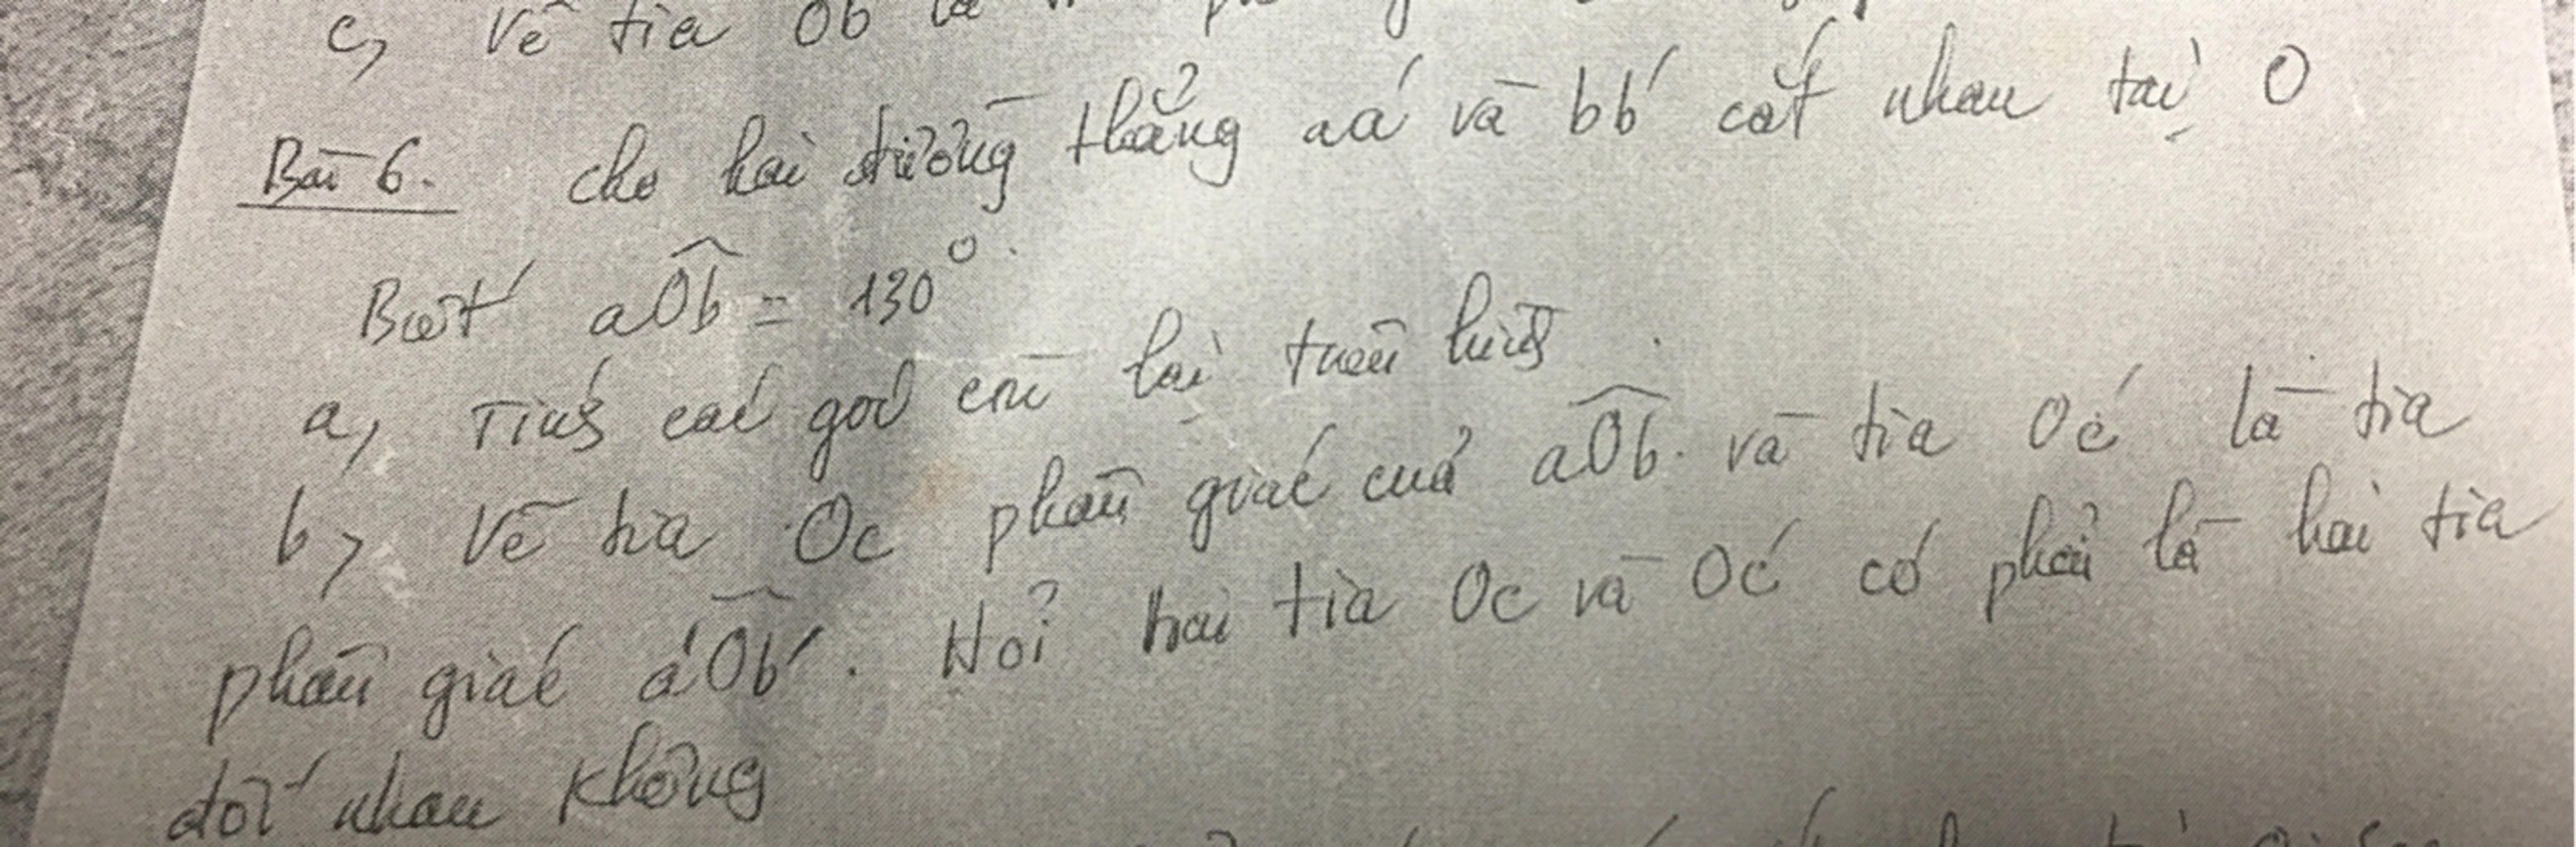 c, Vẽ tia Ob là
Bài 6. cho hai đường thẳng aa' và bb' cắt nhau tại O
Biết aOb = 130°.
a, Tính các góc còn lại trên hình.
b, Vẽ tia Oc phân giác của aOb. và tia Oc' là tia
phân giác a'Ob'. Hỏi hai tia Oc và Oc' có phải là hai tia
đối nhau không